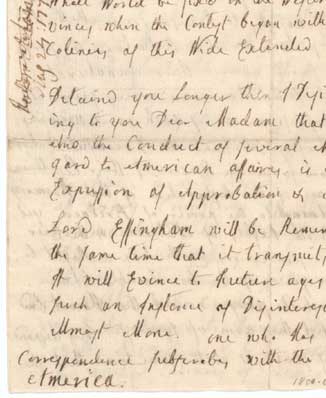 whole World be fixd on the
vinces when the Contest began with
Colonies of this Wide Extended
Detaind you Longer then I
ing to you Dear Madam that
and the Conduct of several
gard to American affairs is
Expression of Approbation &
Lord Effingham will be Remem
the same time that it transmit
It will Evince to Future ages
such an Instance of Disinteres
Almost Alone. one who has
Correspondence subscribes with the
America.